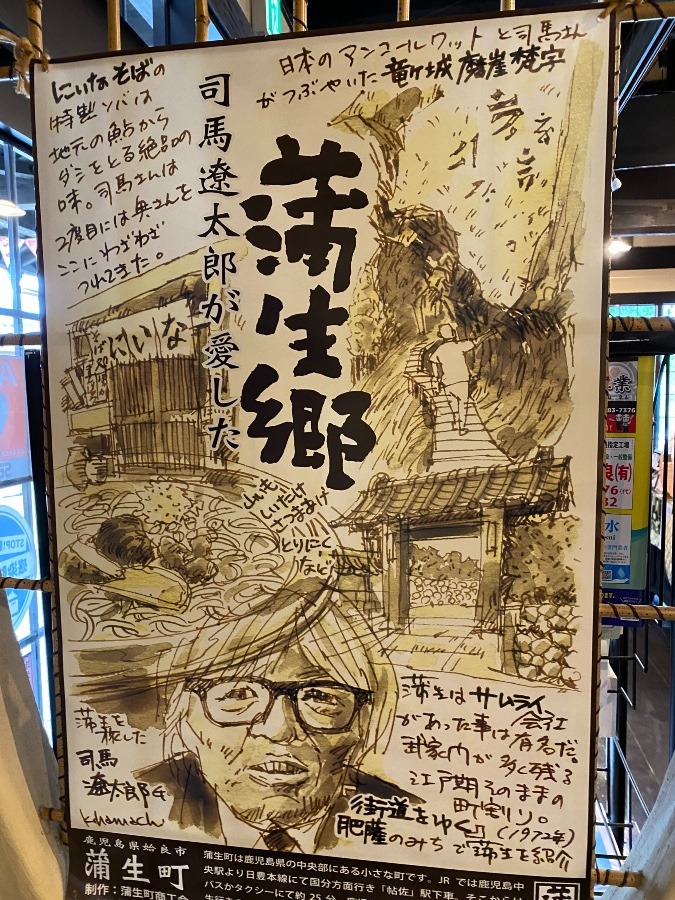 にいなそばの
特製ソバは
地元の鮎から
ダシをとる絶品の
味。司馬さんは
2度目には奥さんを
ここにわざわざ
つれてきた。
日本のアンコールワットと司馬さん
がつぶやいた竜ヶ城磨崖梵字
司馬遼太郎が愛した
蒲生郷
にいな
とりにく
など
蒲生を
旅した
司馬
遼太郎
蒲生はサムライ会社
があった事は有名だ。
武家門が多く残る
江戸期そのままの
町割り。
街道をゆく (1972年)
肥薩のみちで蒲生を紹介
鹿児島県姶良市
蒲生町
制作：蒲生町商工会
蒲生町は鹿児島県の中央部にある小さな町です。JRでは鹿児島中
央駅より日豊本線にて国分方面行き「帖佐」駅下車。そこからは
バスかタクシーにて約25分
業
83-7376
指定工場
良(有)
水